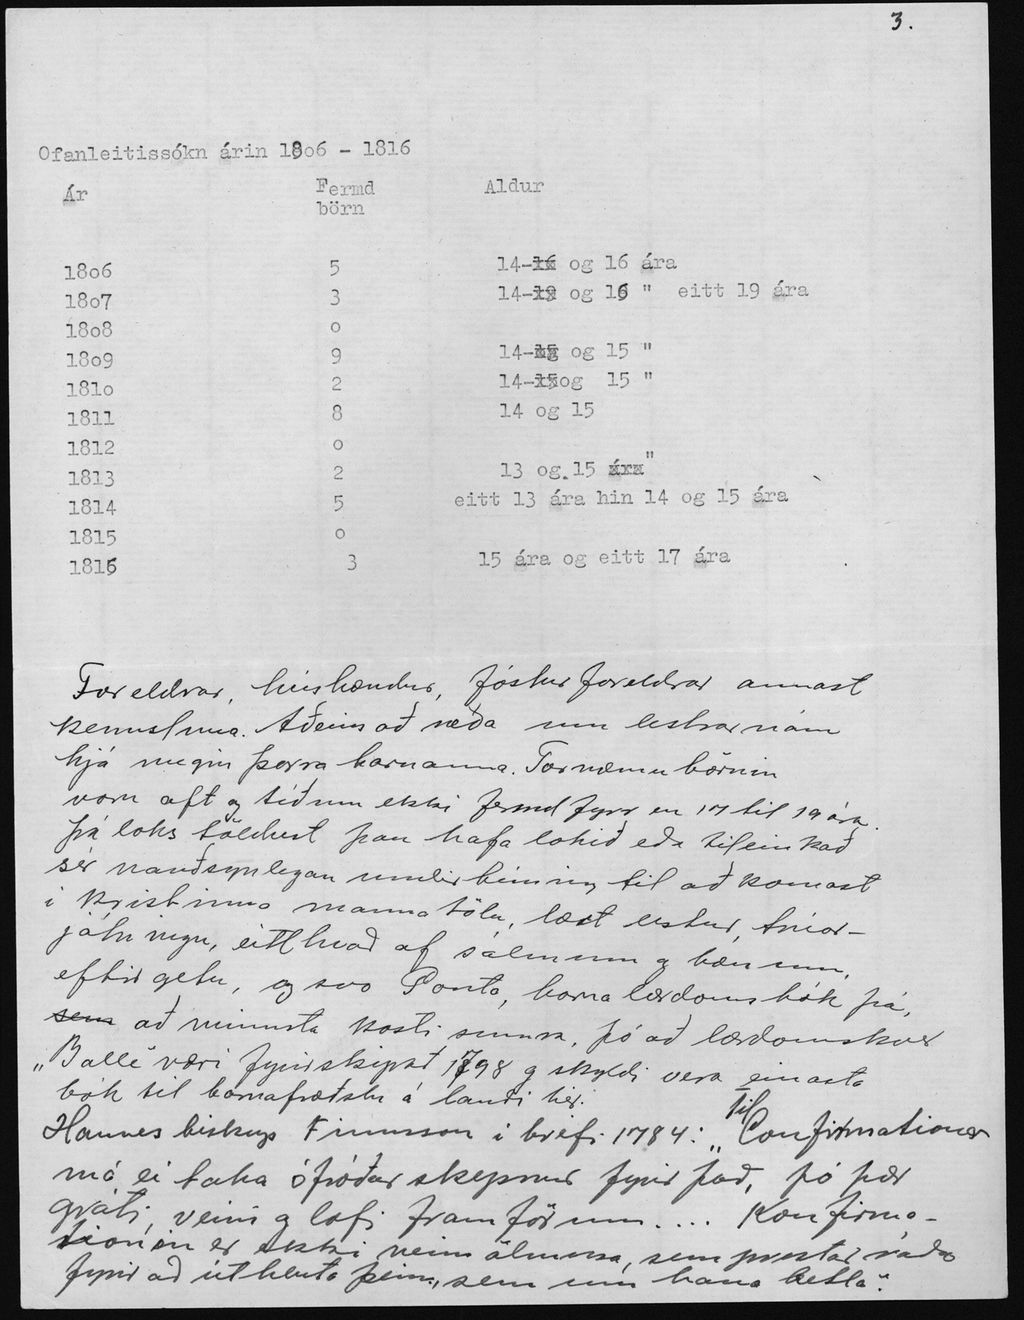 3.
Ofanleitissókn árin 18o6 - 1816
Ár Fermd börn Aldur
18o6 5 14- og 16 ára
18o7 3 14- og 16 " eitt 19 ára
18o8 o
18o9 9 14- og 15 "
181o 2 14- og 15 "
1811 8 14 og 15
1812 o
1813 2 13 og 15 "
1814 5 eitt 13 ára hin 14 og 15 ára
1815 o
1816 3 15 ára og eitt 17 ára
Foreldrar, húsbændur, fósturforeldrar annast
kennsluna. Aðeins að ræða um lestrarnám
hjá megin þorra barnanna. Tornæmu börnin
voru oft og tíðum ekki fermd fyrr en 17 til 19 ára.
Þá loks töldust þau hafa lokið eða tileinkað
sér nauðsynlegan undirbúning til að komast
í kristinna manna tölu, lært lestur, trúar-
játningu, eitthvað af sálmum og bænum,
eftir getu, og svo Ponta, barnalærdómsbók þá,
sem að minnsta kosti sumra, þó að lærdómskver
„Balle" væri fyrirskipað 1798 og skyldi vera einasta
bók til barnafræðslu á landi hér.
Hannes biskup Finnsson í bréfi 1784: „Til Confirmationar
má ei taka ófróðar skepnur fyrir það, þó þær
gráti, veini og lofi framförum.... Konfirma-
tionen er ekki nein ölmusa, sem prestar ráða
fyrir að úthluta þeim, sem um hana betla".